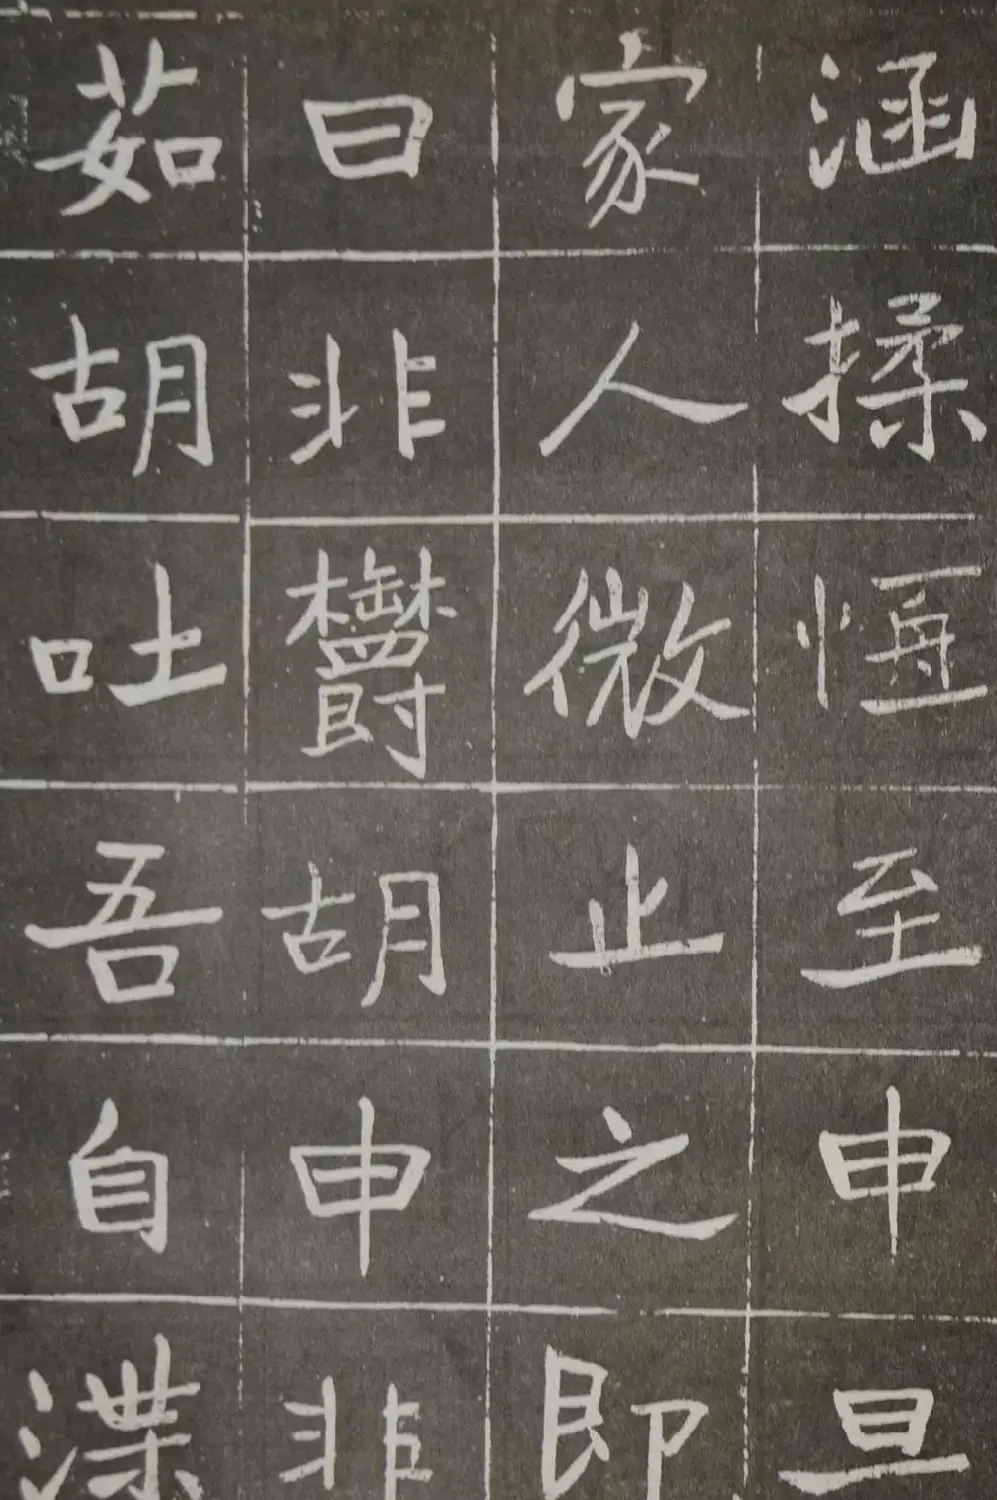 涵揉恒至申旦
家人微止之即
曰非欝胡申非
茹胡吐吾自渫